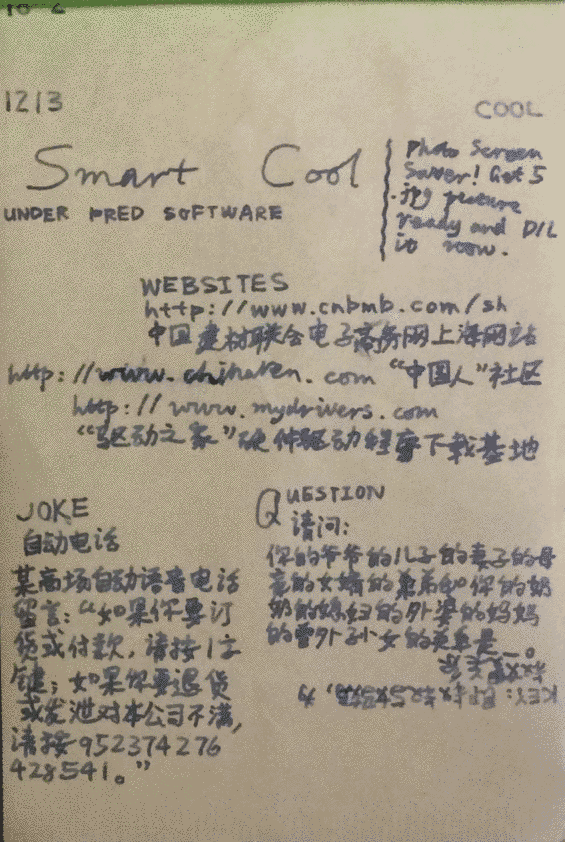 12/3
COOL
Smart Cool
UNDER PRED SOFTWARE
Photo Screen
Saver! Get 5
.jpg picture
ready and D/L
it now.
WEBSITES
http://www.cnbmb.com/sh
中国建材联合电子商务网上海网站
http://www.chinaren.com “中国人”社区
http://www.mydrivers.com
“驱动之家”硬件驱动程序下载基地
JOKE
自动电话
某商场自动语音电话
留言:“如果你要订
货或付款,请按1字
键;如果你要退货
或发泄对本公司不满,
请按952374276
428541。”
QUESTION
请问:
你的爷爷的儿子的妻子的母
亲的女婿的弟弟和你的奶
奶的媳妇的外婆的妈妈
的曾外孙女的关系是__。
KEY: